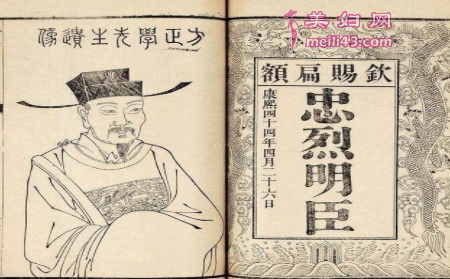 美妇网
meili43.com
欽賜扁額
忠烈明臣
康熙四十四年四月二十六日
方正學先生遺像